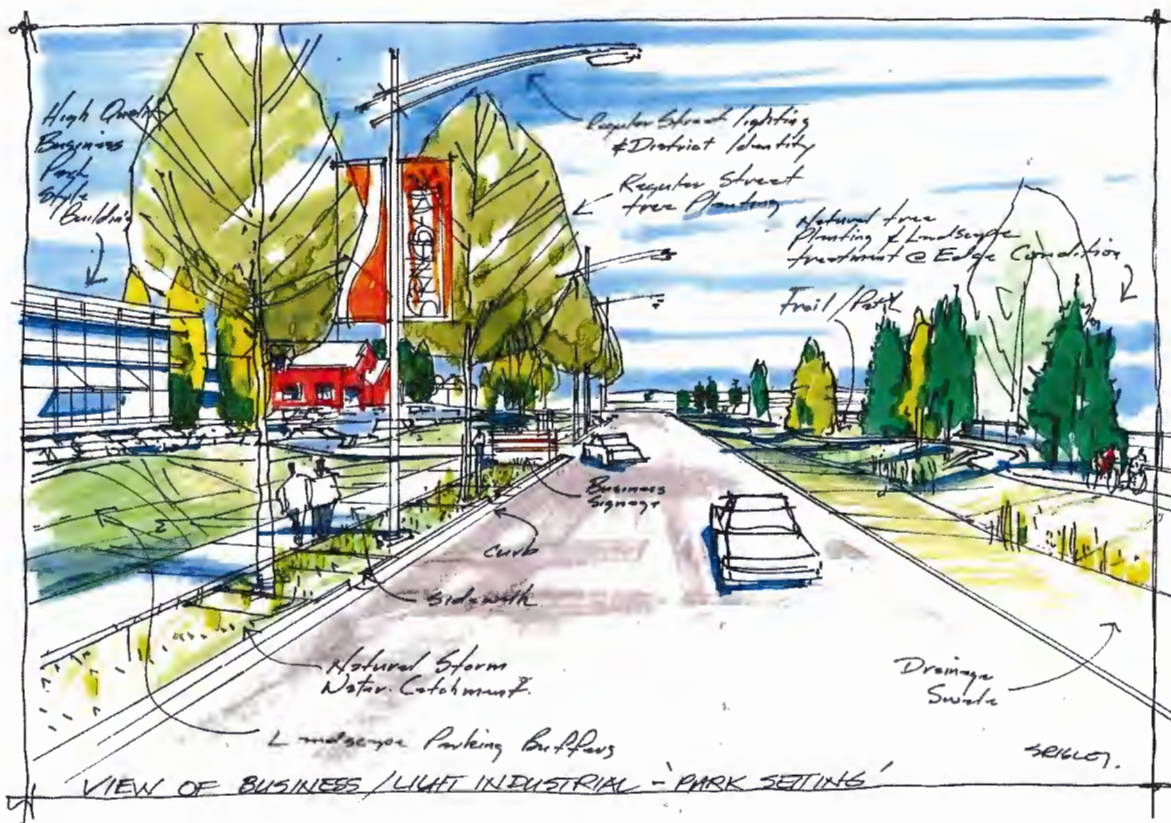 High Quality
Business
Park
Style
Building
Regular Street lighting
& District Identity
Regular Street
tree Planting
Natural tree
Planting & Landscape
treatment @ Edge Condition
Trail / Path
Business
Signage
Curb
Sidewalk
Natural Storm
Water Catchment.
Landscape Parking Buffers
Drainage
Swale
SRIGLEY.
VIEW OF BUSINESS / LIGHT INDUSTRIAL - 'PARK SETTING'